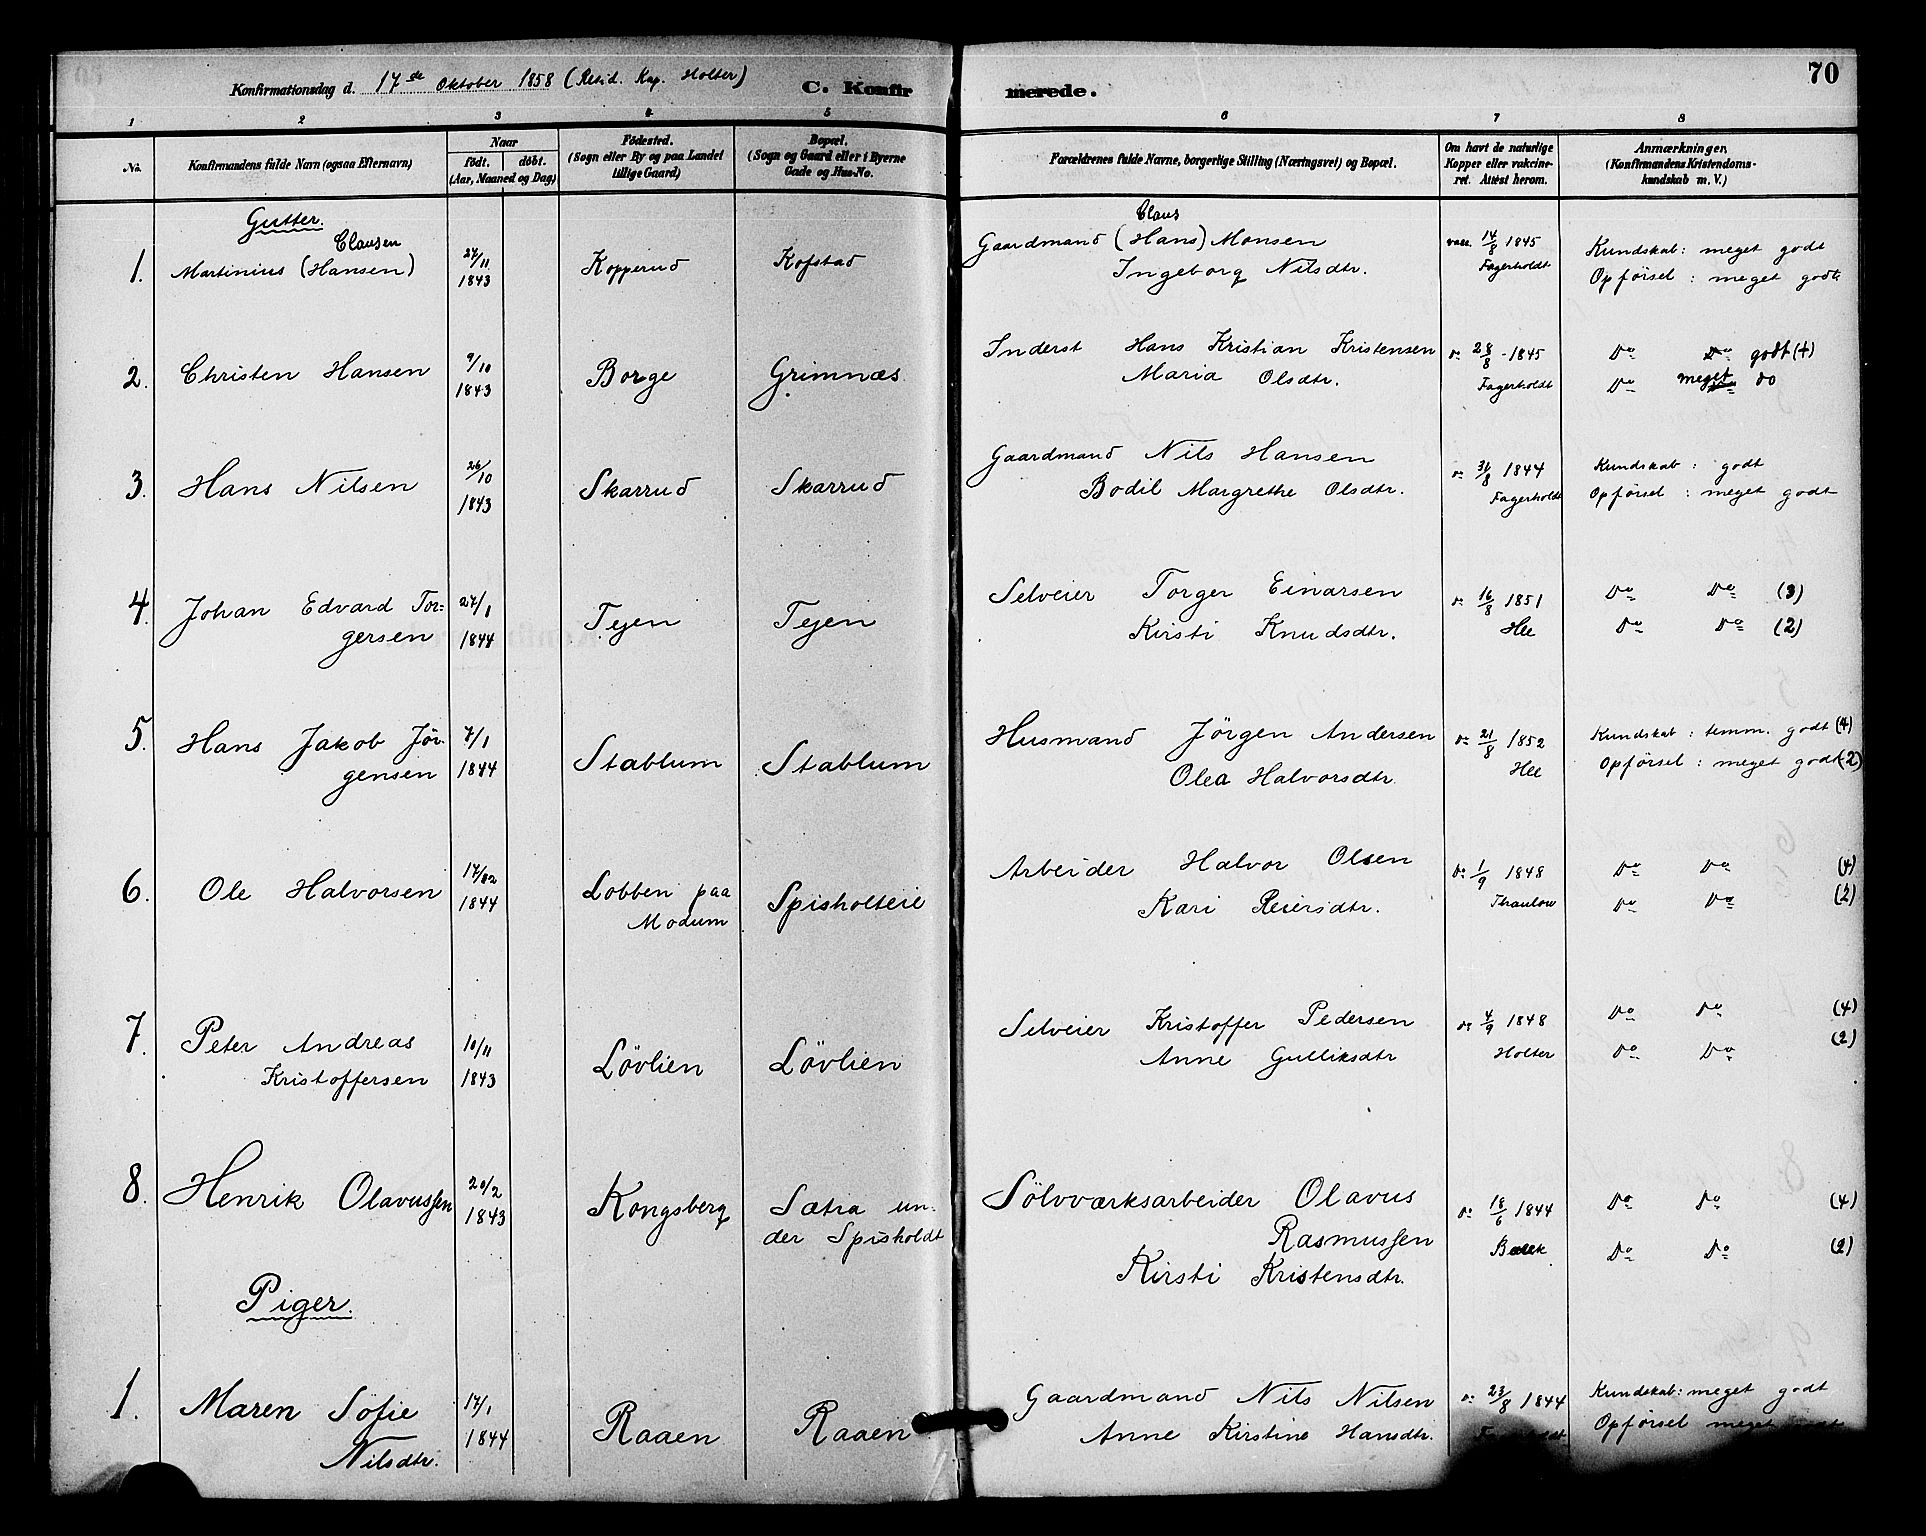 Konfirmationsdag d. 17de Oktober 1858 (Resid. Kap. Holter)
C. Konfirmerede.
70
1 2 3 4 5 6 7 8
No.
Konfirmandens fulde Navn (ogsaa Efternavn)
Naar
født. døbt.
(Aar, Maaned og Dag)
Fødested.
(Sogn eller By og paa Landet
tillige Gaard)
Bopæl.
(Sogn og Gaard eller i Byerne
Gade og Hus-No.
Forældrenes fulde Navne, borgerlige Stilling (Næringsvei) og Bopæl.
Om havt de naturlige
Kopper eller vakcine-
ret. Attest herom.
Anmærkninger,
(Konfirmandens Kristendoms-
kundskab m. V.)
Gutter.
1. Martinius (Hansen) Clausen
27/11 1843
Kopperud
Kofstad
Gaardmand (Hans) Claus Monsen
Ingeborg Nilsdtr.
vacc. 14/8 1845
Fagerholdt
Kundskab: meget godt
Opførsel: meget godt
2. Christen Hansen
9/10 1843
Borge
Grimnæs
Inderst Hans Kristian Kristensen
Maria Olsdtr.
do 28/8 - 1845
Fagerholdt
Do godt (+)
Do meget do
3. Hans Nilsen
26/10 1843
Skarrud
Skarrud
Gaardmand Nils Hansen
Bodil Margrethe Olsdtr.
do 31/8 1844
Fagerholdt
Kundskab: godt
Opførsel: meget godt
4. Johan Edvard Tor=
gersen
27/1 1844
Tejen
Tejen
Selveier Torger Einarsen
Kirsti Knudsdtr.
do 16/8 1851
Hee
Do Do (3)
Do Do (2)
5. Hans Jakob Jør-
gensen
7/1 1844
Stablum
Stablum
Husmand Jørgen Andersen
Olea Halvorsdtr.
do 21/8 1852
Hee
Kundskab: temm. godt (4)
Opførsel: meget godt (2)
6. Ole Halvorsen
17/02 1844
Lobben paa
Modum
Spisholteie
Arbeider Halvor Olsen
Kari Reiersdtr.
do 1/9 1848
Thaulow
Do Do (4)
Do Do (2)
7. Peter Andreas
Kristoffersen
10/11 1843
Løvlien
Løvlien
Selveier Kristoffer Pedersen
Anne Gulliksdtr
do 4/9 1848
Holter
Do Do (4)
Do Do (2)
8. Henrik Olavussen
20/2 1843
Kongsberg
Sætra un-
der Spisholdt
Sølvværksarbeider Olavus
Rasmussen
Kirsti Kristensdtr.
do 18/6 1844
Do Do (4)
Do Do (2)
Piger.
1. Maren Sofie
Nilsdtr.
17/1 1844
Raaen
Raaen
Gaardmand Nils Nilsen
Anne Kirstine Hansdtr.
do 23/8 1844
Kundskab: meget godt
Opførsel meget godt